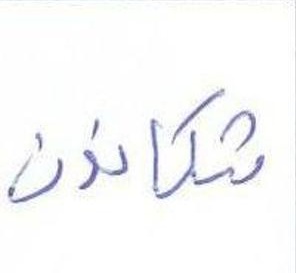 شكانون